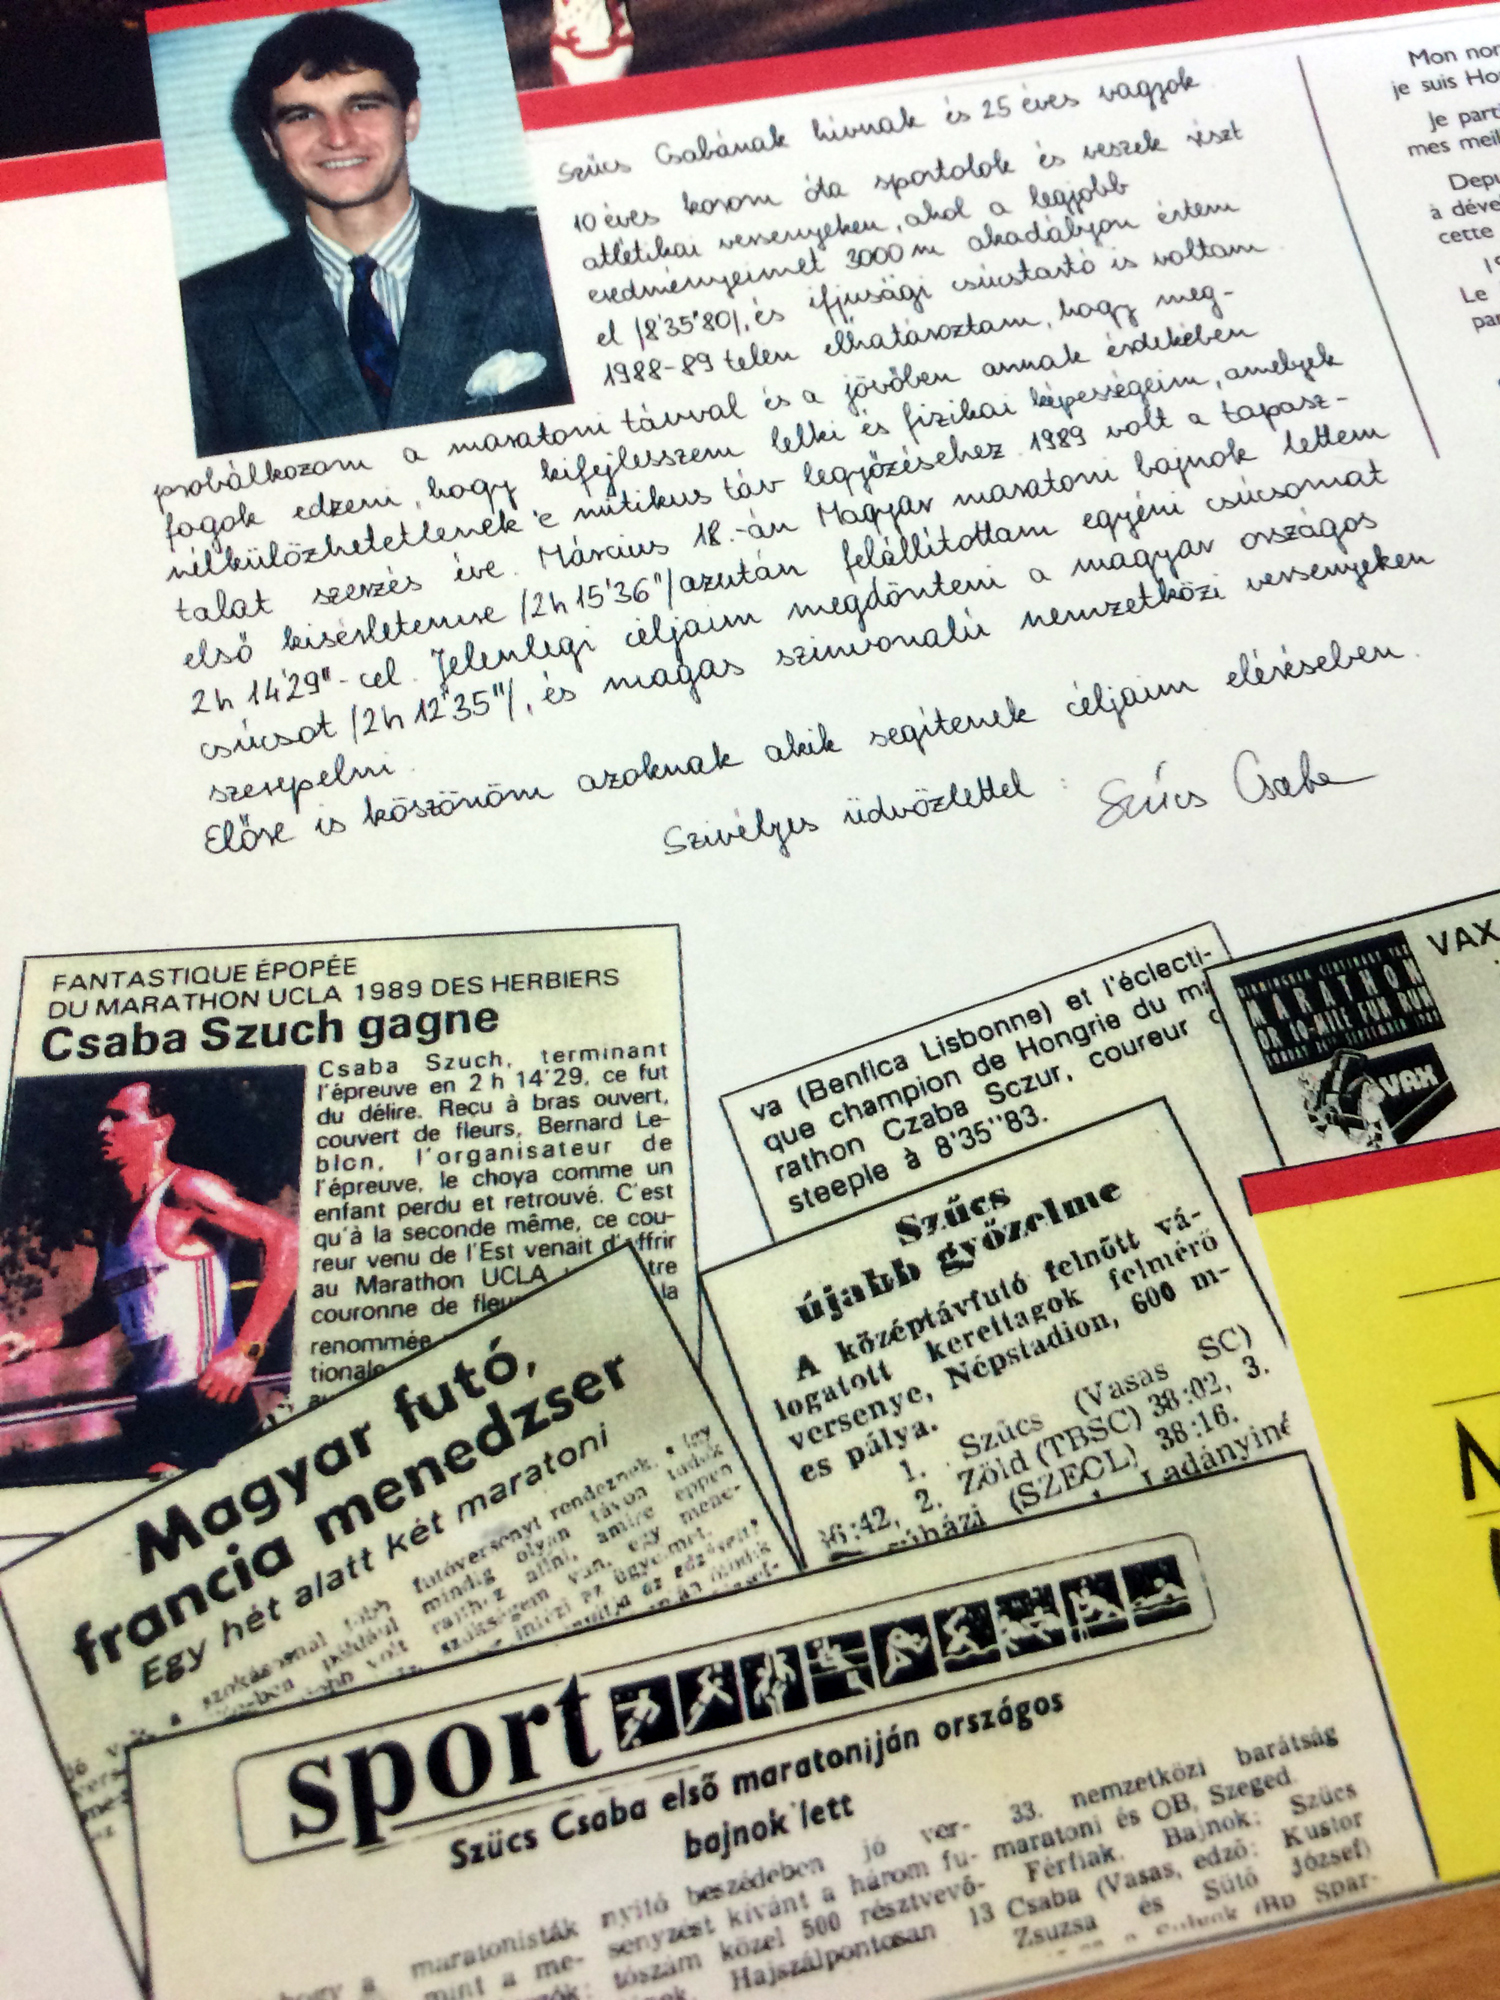 Szűcs Csabának hívnak és 25 éves vagyok
10 éves korom óta sportolok és veszek részt
atlétikai versenyeken, ahol a legjobb
eredményeimet 3000 m akadályon értem
el /8'35"80/, és ifjusági csúcstartó is voltam
1988-89 telén elhatároztam, hogy meg-
próbálkozom a maratoni távval és a jövőben annak érdekében
fogok edzeni, hogy kifejlesszem lelki és fizikai képességeim, amelyek
nélkülözhetetlenek e mitikus táv legyőzéséhez. 1989 volt a tapasz-
talat szerzés éve. Március 18.-án Magyar maratoni bajnok lettem
első kisérletemre /2h 15'36"/ azután felállítottam egyéni csúcsomat
2h 14'29"-cel. Jelenlegi céljaim megdönteni a magyar országos
csúcsot /2h 12'35"/, és magas szinvonalú nemzetközi versenyeken
szerepelni.
Előre is köszönöm azoknak akik segítenek céljaim elérésében.
Szivélyes üdvözlettel : Szűcs Csaba
Mon nom
je suis Ho
Je parti
mes meil
Depu
à déve
cette
Le
par
FANTASTIQUE ÉPOPÉE
DU MARATHON UCLA 1989 DES HERBIERS
Csaba Szuch gagne
Csaba Szuch, terminant
l'épreuve en 2 h 14'29, ce fut
du délire. Reçu à bras ouvert,
couvert de fleurs, Bernard Le-
blon, l'organisateur de
l'épreuve, le choya comme un
enfant perdu et retrouvé. C'est
qu'à la seconde même, ce cou-
reur venu de l'Est venait d'offrir
au Marathon UCLA tre
couronne de fleu la
renommée
tionale
va (Benfica Lisbonne) et l'éclecti-
que champion de Hongrie du ma
rathon Czaba Sczur, coureur d
steeple à 8'35''83.
MARATHON
OR 10-MILE FUN RUN
VAX
VAX
Szűcs
újabb győzelme
A középtávfutó felnőtt vá-
logatott kerettagok felmérő
versenye, Népstadion, 600 m-
es pálya.
1. Szűcs (Vasas SC)
36:42, 2. Zöld (TBSC) 38:02, 3.
házi (SZEOL) 38:16.
Ladányiné
Magyar futó,
francia menedzser
Egy hét alatt két maratoni
futóversenyt rendeznek, s így
mindig olyan távon tudok
rajthoz állni, amire éppen
szükségem van, egy mene-
intézi az ügyeimet.
sport
Szücs Csaba első maratoniján országos
bajnok lett
maratonisták nyitó beszédében jó ver-
mint a me- senyzést kívánt a három fu-
tószám közel 500 résztvevő-
Hajszálpontosan 13
33. nemzetközi barátság
maratoni és OB, Szeged.
Férfiak. Bajnok: Szücs
Csaba (Vasas, edző: Kustor
Zsuzsa és Sütő József)